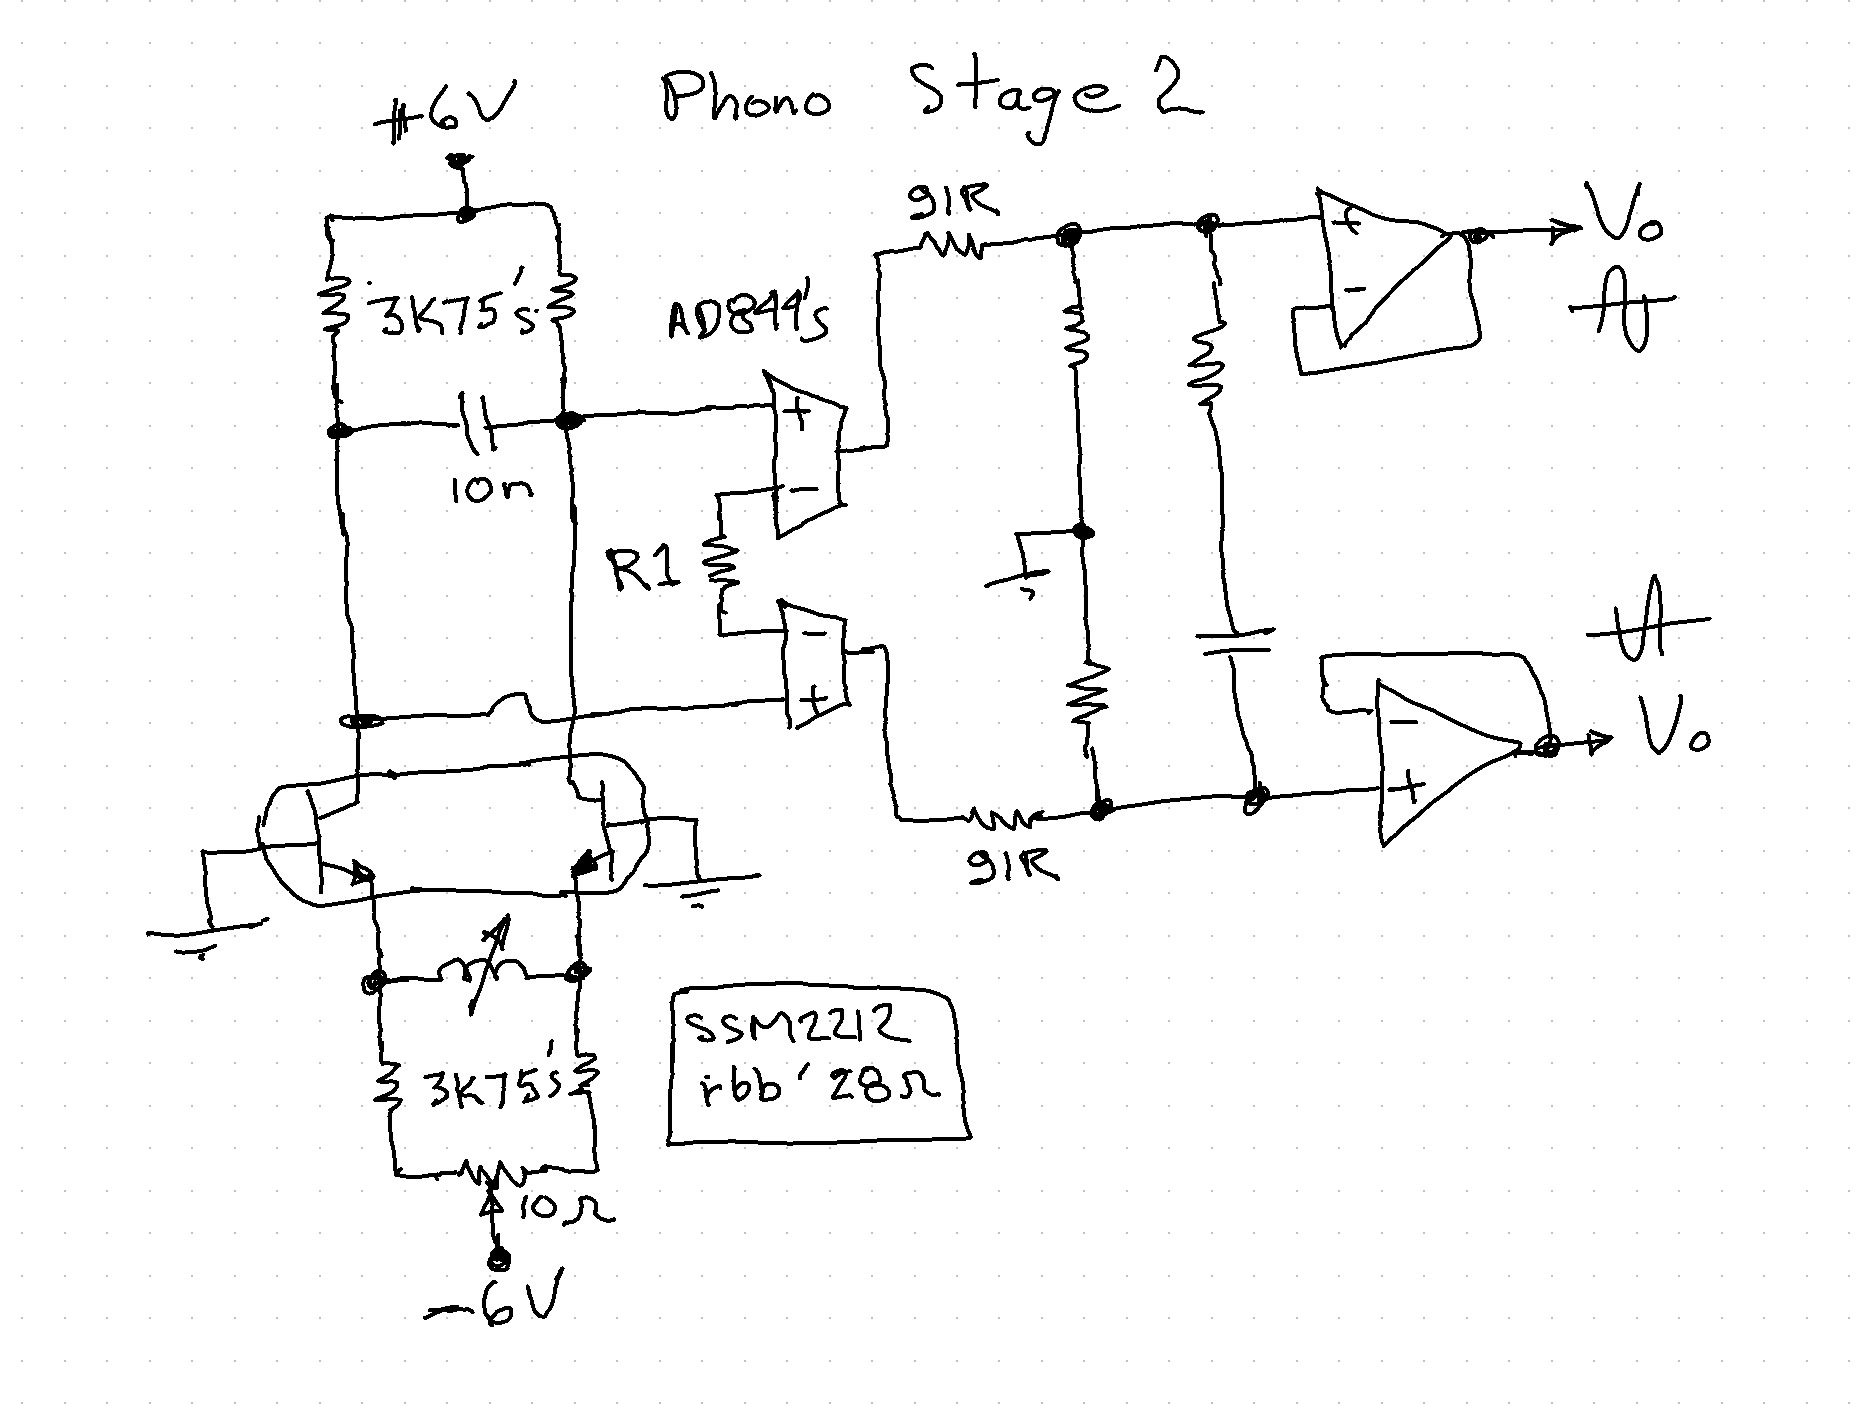 Phono Stage 2
+6V
91R
Vo
3K75's
AD844's
+
-
+
10n
-
R1
-
+
Vo
-
+
91R
SSM2212
rbb' 28Ω
3K75's
10Ω
-6V